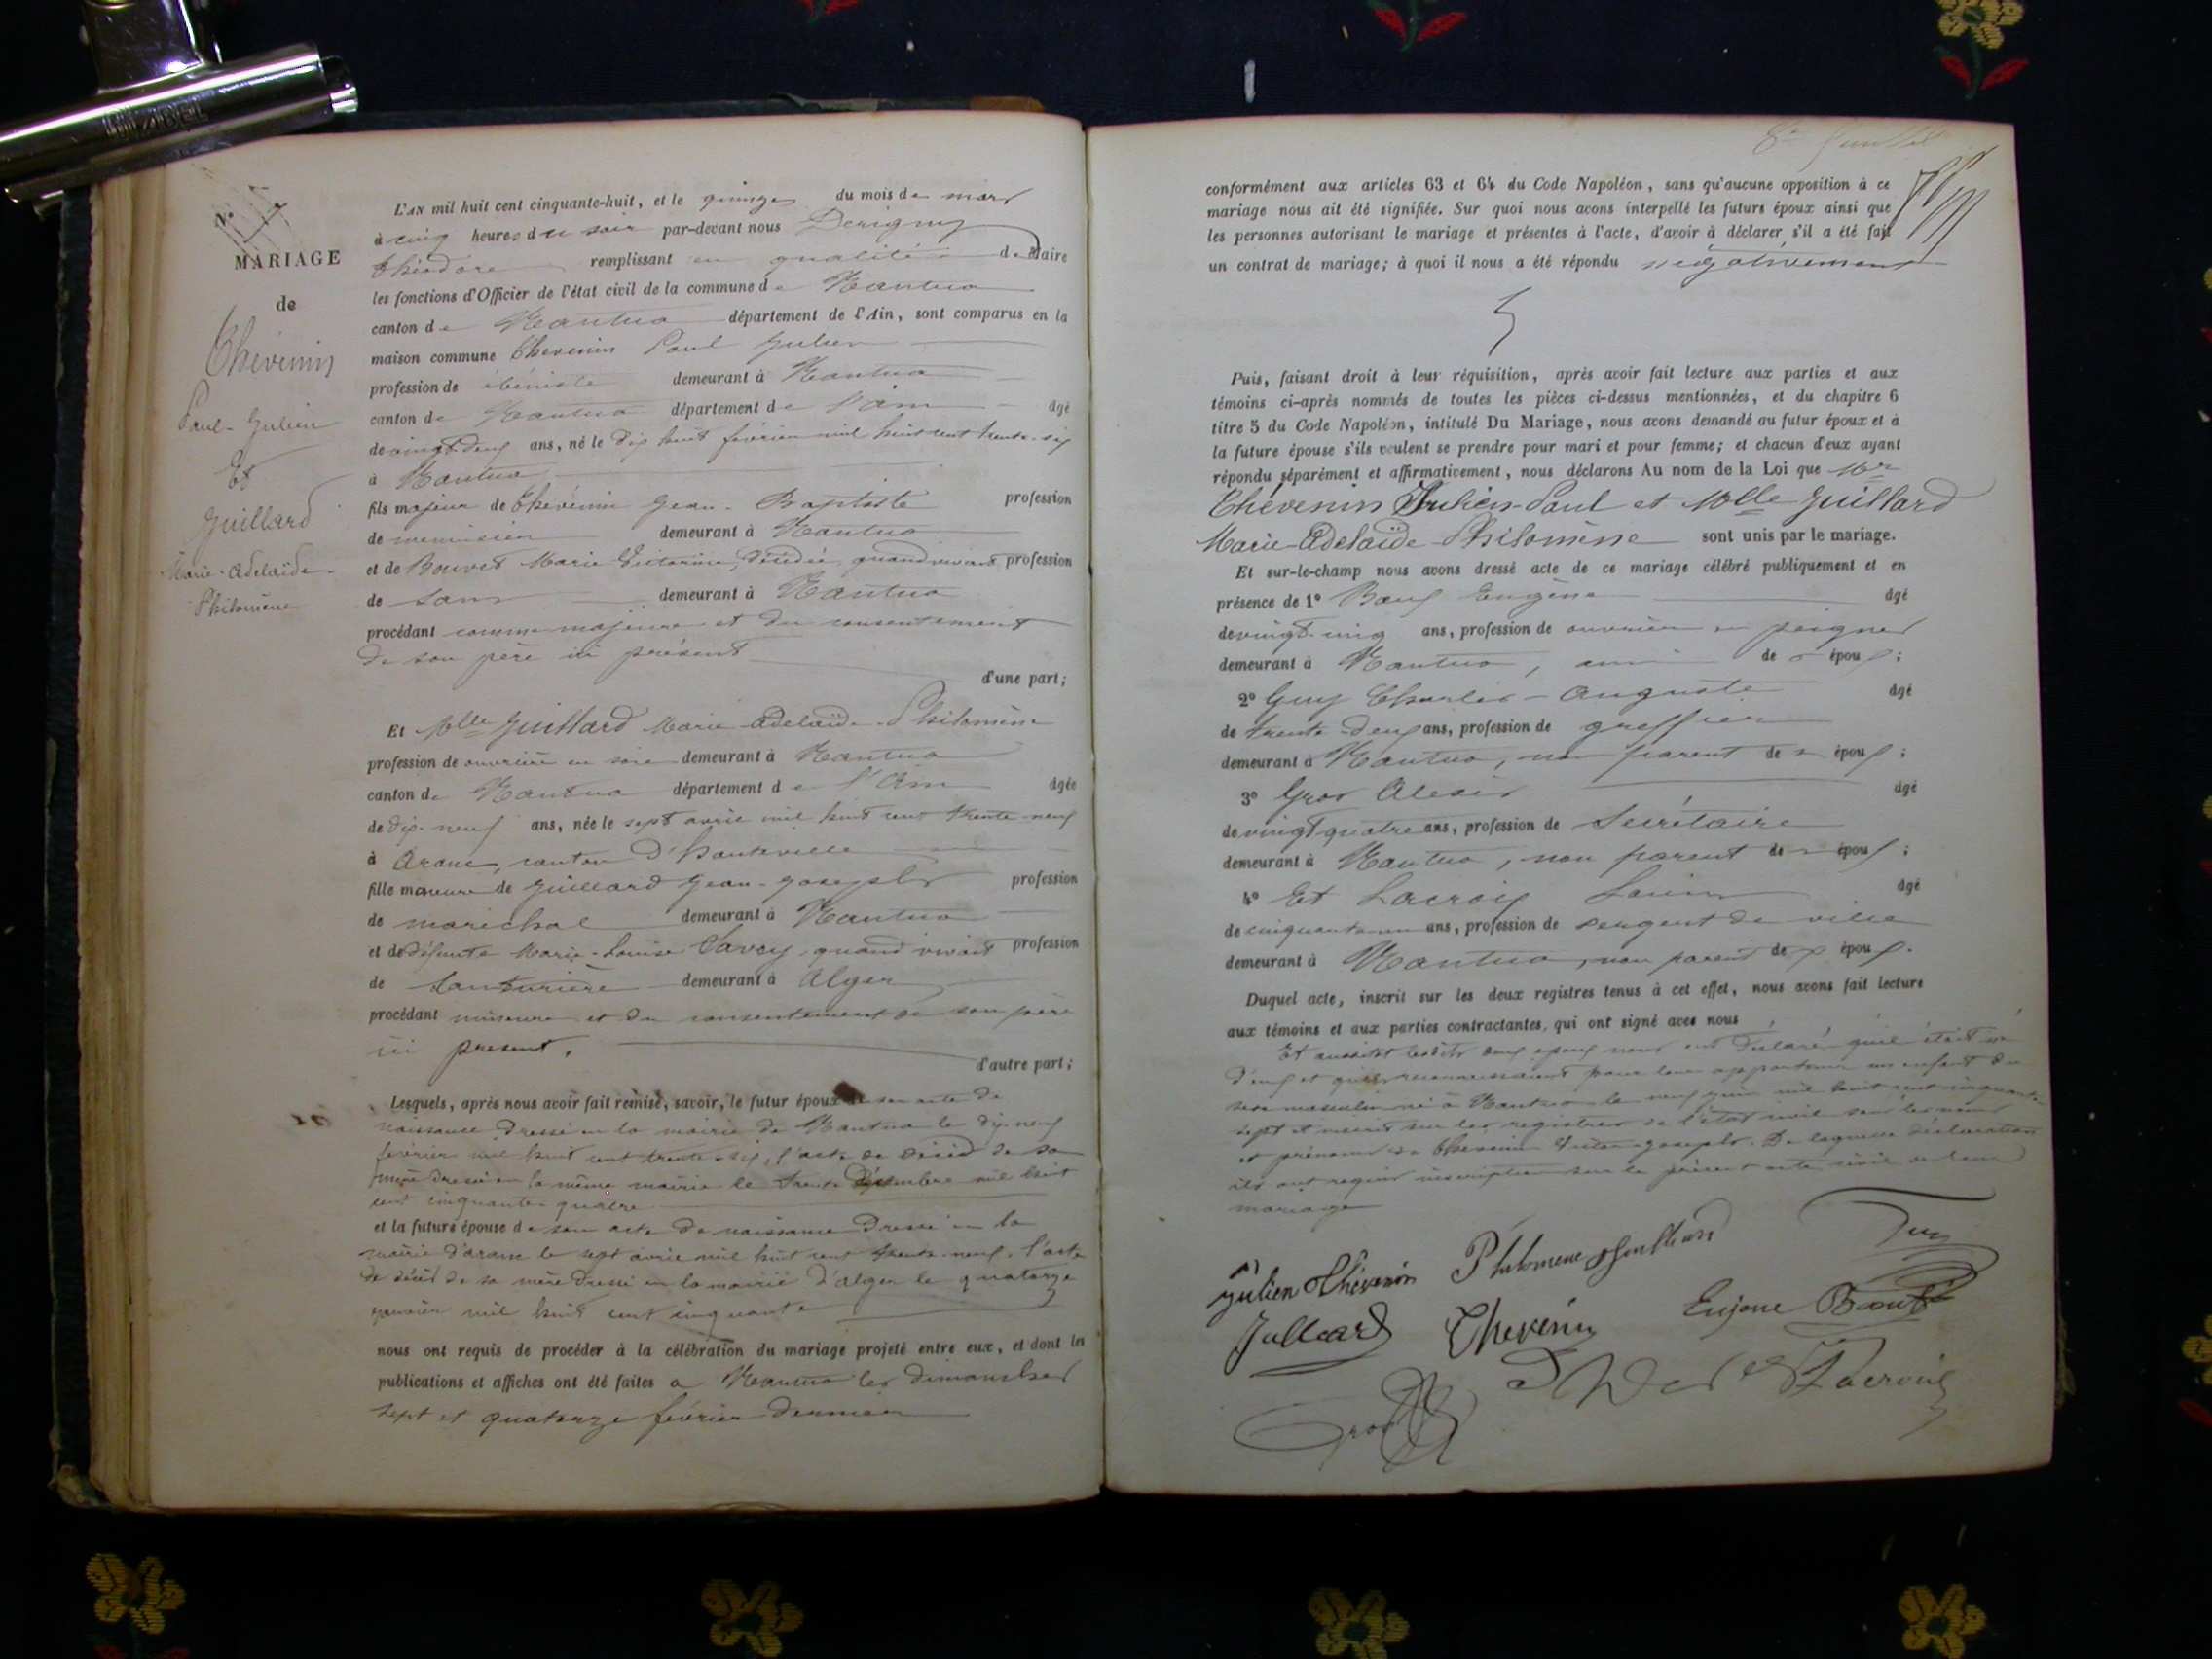 N° 7
MARIAGE
de
Thévenin
Paul-Julien
Et
Guillard
Marie-Adelaïde-
Philomène
L'AN mil huit cent cinquante-huit, et le quinze du mois de mars
à cinq heures du soir par-devant nous Derigny
Théodore remplissant en qualité de Maire
les fonctions d'Officier de l'état civil de la commune de Nantua
canton de Nantua département de l'Ain, sont comparus en la
maison commune Thevenin Paul Julien
profession de ébéniste demeurant à Nantua
canton de Nantua département de l'ain âgé
de vingt-deux ans, né le dix huit février mil huit cent trente-six
à Nantua
fils majeur de Thévenin Jean-Baptiste profession
de menuisier demeurant à Nantua
et de Bouvet Marie Victorine, décédée, quand vivait profession
de sans demeurant à Nantua
procédant comme majeur et du consentement
de son père ici présent
d'une part;
Et Mlle Guillard Marie Adelaïde Philomène
profession de ouvrière en soie demeurant à Nantua
canton de Nantua département de l'Ain âgée
de dix-neuf ans, née le sept avril mil huit cent trente-neuf
à Aranc, canton d'hauteville
fille mineure de Guillard Jean-Joseph profession
de maréchal demeurant à Nantua
et de défunte Marie-Louise Savey, quand vivait profession
de demeurant à Alger
procédant mineure et du consentement de son père
ici présent.
d'autre part;
Lesquels, après nous avoir fait remise, savoir, le futur époux de son acte de
naissance dressé en la mairie de Nantua le dix-neuf
février mil huit cent trente-six, l'acte de décès de sa
mère dressé en la même mairie le trente décembre mil huit
cent cinquante-quatre
et la future épouse de son acte de naissance dressé en la
mairie d'aranc le sept avril mil huit cent trente-neuf, l'acte
de décès de sa mère dressé en la mairie d'alger le quatorze
janvier mil huit cent cinquante
nous ont requis de procéder à la célébration du mariage projeté entre eux, et dont les
publications et affiches ont été faites a Nantua les dimanches
sept et quatorze février dernier
conformément aux articles 63 et 64 du Code Napoléon, sans qu'aucune opposition à ce
mariage nous ait été signifiée. Sur quoi nous avons interpellé les futurs époux ainsi que
les personnes autorisant le mariage et présentes à l'acte, d'avoir à déclarer s'il a été fait
un contrat de mariage; à quoi il nous a été répondu négativement
Puis, faisant droit à leur réquisition, après avoir fait lecture aux parties et aux
témoins ci-après nommés de toutes les pièces ci-dessus mentionnées, et du chapitre 6
titre 5 du Code Napoléon, intitulé Du Mariage, nous avons demandé au futur époux et à
la future épouse s'ils veulent se prendre pour mari et pour femme; et chacun d'eux ayant
répondu séparément et affirmativement, nous déclarons Au nom de la Loi que Mr
Thévenin Julien-Paul et Mlle Guillard
Marie-Adelaïde-Philomène sont unis par le mariage.
Et sur-le-champ nous avons dressé acte de ce mariage célébré publiquement et en
présence de 1° Eugène âgé
de vingt-cinq ans, profession de ouvrier en peignes
demeurant à Nantua, ami de époux;
2° Guy Charles-Auguste âgé
de trente-deux ans, profession de greffier
demeurant à Nantua, non parent de époux;
3° Gros Alexis âgé
de vingt quatre ans, profession de Secrétaire
demeurant à Nantua, non parent de époux;
4° Et Lacroix Louis âgé
de cinquante un ans, profession de sergent de ville
demeurant à Nantua, non parent de époux.
Duquel acte, inscrit sur les deux registres tenus à cet effet, nous avons fait lecture
aux témoins et aux parties contractantes, qui ont signé avec nous
Et aussitôt lesdits deux époux nous ont déclaré qu'il était né
d'eux et qu'ils reconnaissaient pour leur appartenir un enfant du
sexe masculin né à Nantua le neuf juin mil huit cent cinquante
sept et inscrit sur les registres de l'état civil sous les noms
et prénoms de Thevenin Victor-Joseph. De laquelle déclaration
ils ont requis inscription sur le présent acte civil de leur
mariage
Julien Thévenin Philomene Guilliard Guy
Julliard Thevenin Eujene
Gros Lacroix